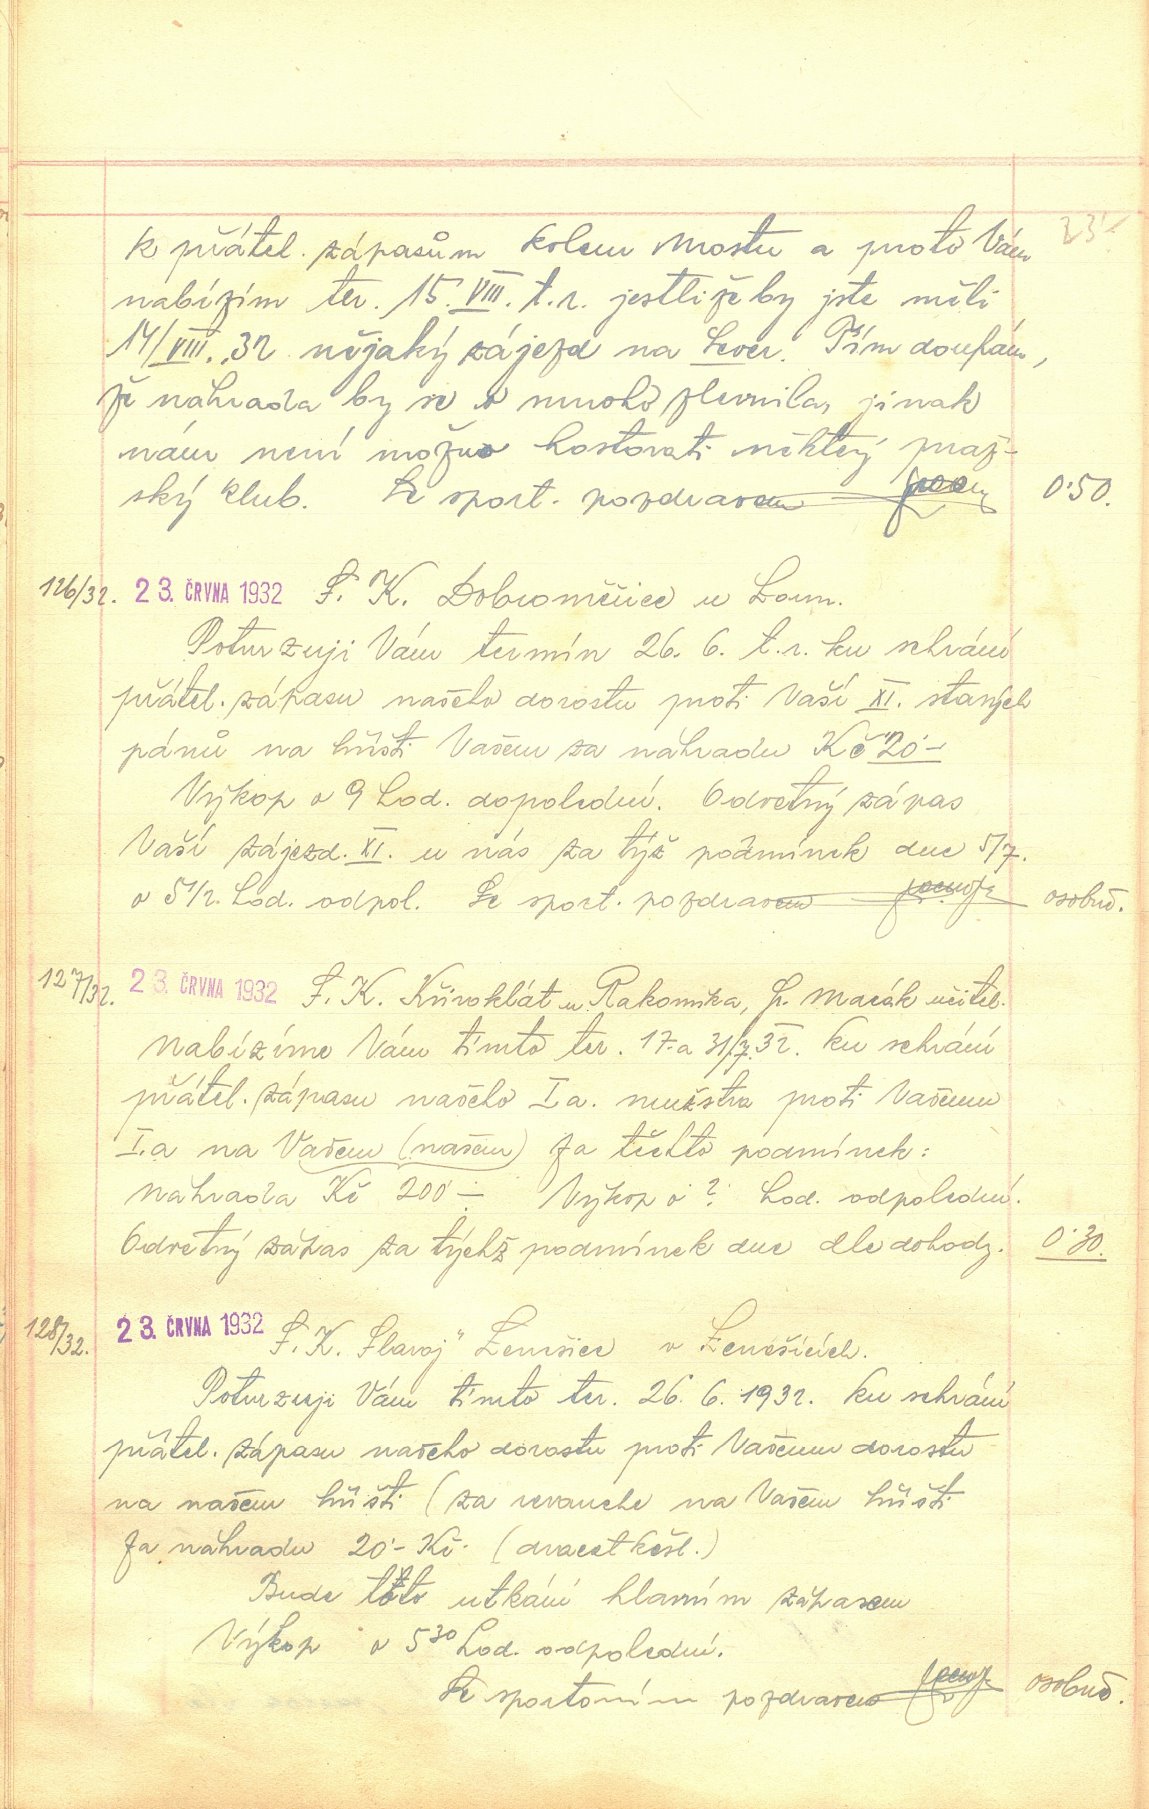 23.-
k přátel. zápasům kolem Mostu a proto Vám
nabízím ter. 15. VIII. t.r. jestliže by jste měli
14/VIII. 32 nějaký zájezd na sever. Tím doufám,
že náhrada by se o mnoho zlevnila, jinak
nám není možno hostovati některý praž-
ský klub. Se sport. pozdravem 0·50.
126/32. 23. ČRVNA 1932 S. K. Dobroměřice u Loun.
Potvrzuji Vám termín 26. 6. t.r. ku sehrání
přátel. zápasu našeho dorostu proti Vaší XI. starých
pánů na hřišti Vašem za náhradu Kč 20·-
Výkop o 9 hod. dopolední. Odvetný zápas
Vaší zájezd. XI. u nás za týž podmínek dne 5/7.
o 5 1/2. hod. odpol. Se sport. pozdravem osobně.
127/32. 23. ČRVNA 1932 S. K. Křivoklát u Rakovníka, p. Macák učitel.
Nabízíme Vám tímto ter. 17. a 31/7. 32. ku sehrání
přátel. zápasu našeho I a. mužstva proti Vašemu
I. a na Vašem (našem) za těchto podmínek:
Náhrada Kč 200·- Výkop o ? hod. odpolední.
Odvetný zápas za týchž podmínek dne dle dohody. 0·30.
128/32. 23. ČRVNA 1932 S. K. Slavoj" Lenešice v Lenešicích.
Potvrzuji Vám tímto ter. 26. 6. 1932. ku sehrání
přátel. zápasu našeho dorostu proti Vašemu dorostu
na našem hřišti (za revanche na Vašem hřišti
za náhradu 20·- Kč. (dvacet kčsl.)
Bude toto utkání hlavním zápasem
Výkop o 5 30 hod. odpolední.
Se sportovním pozdravem osobně.